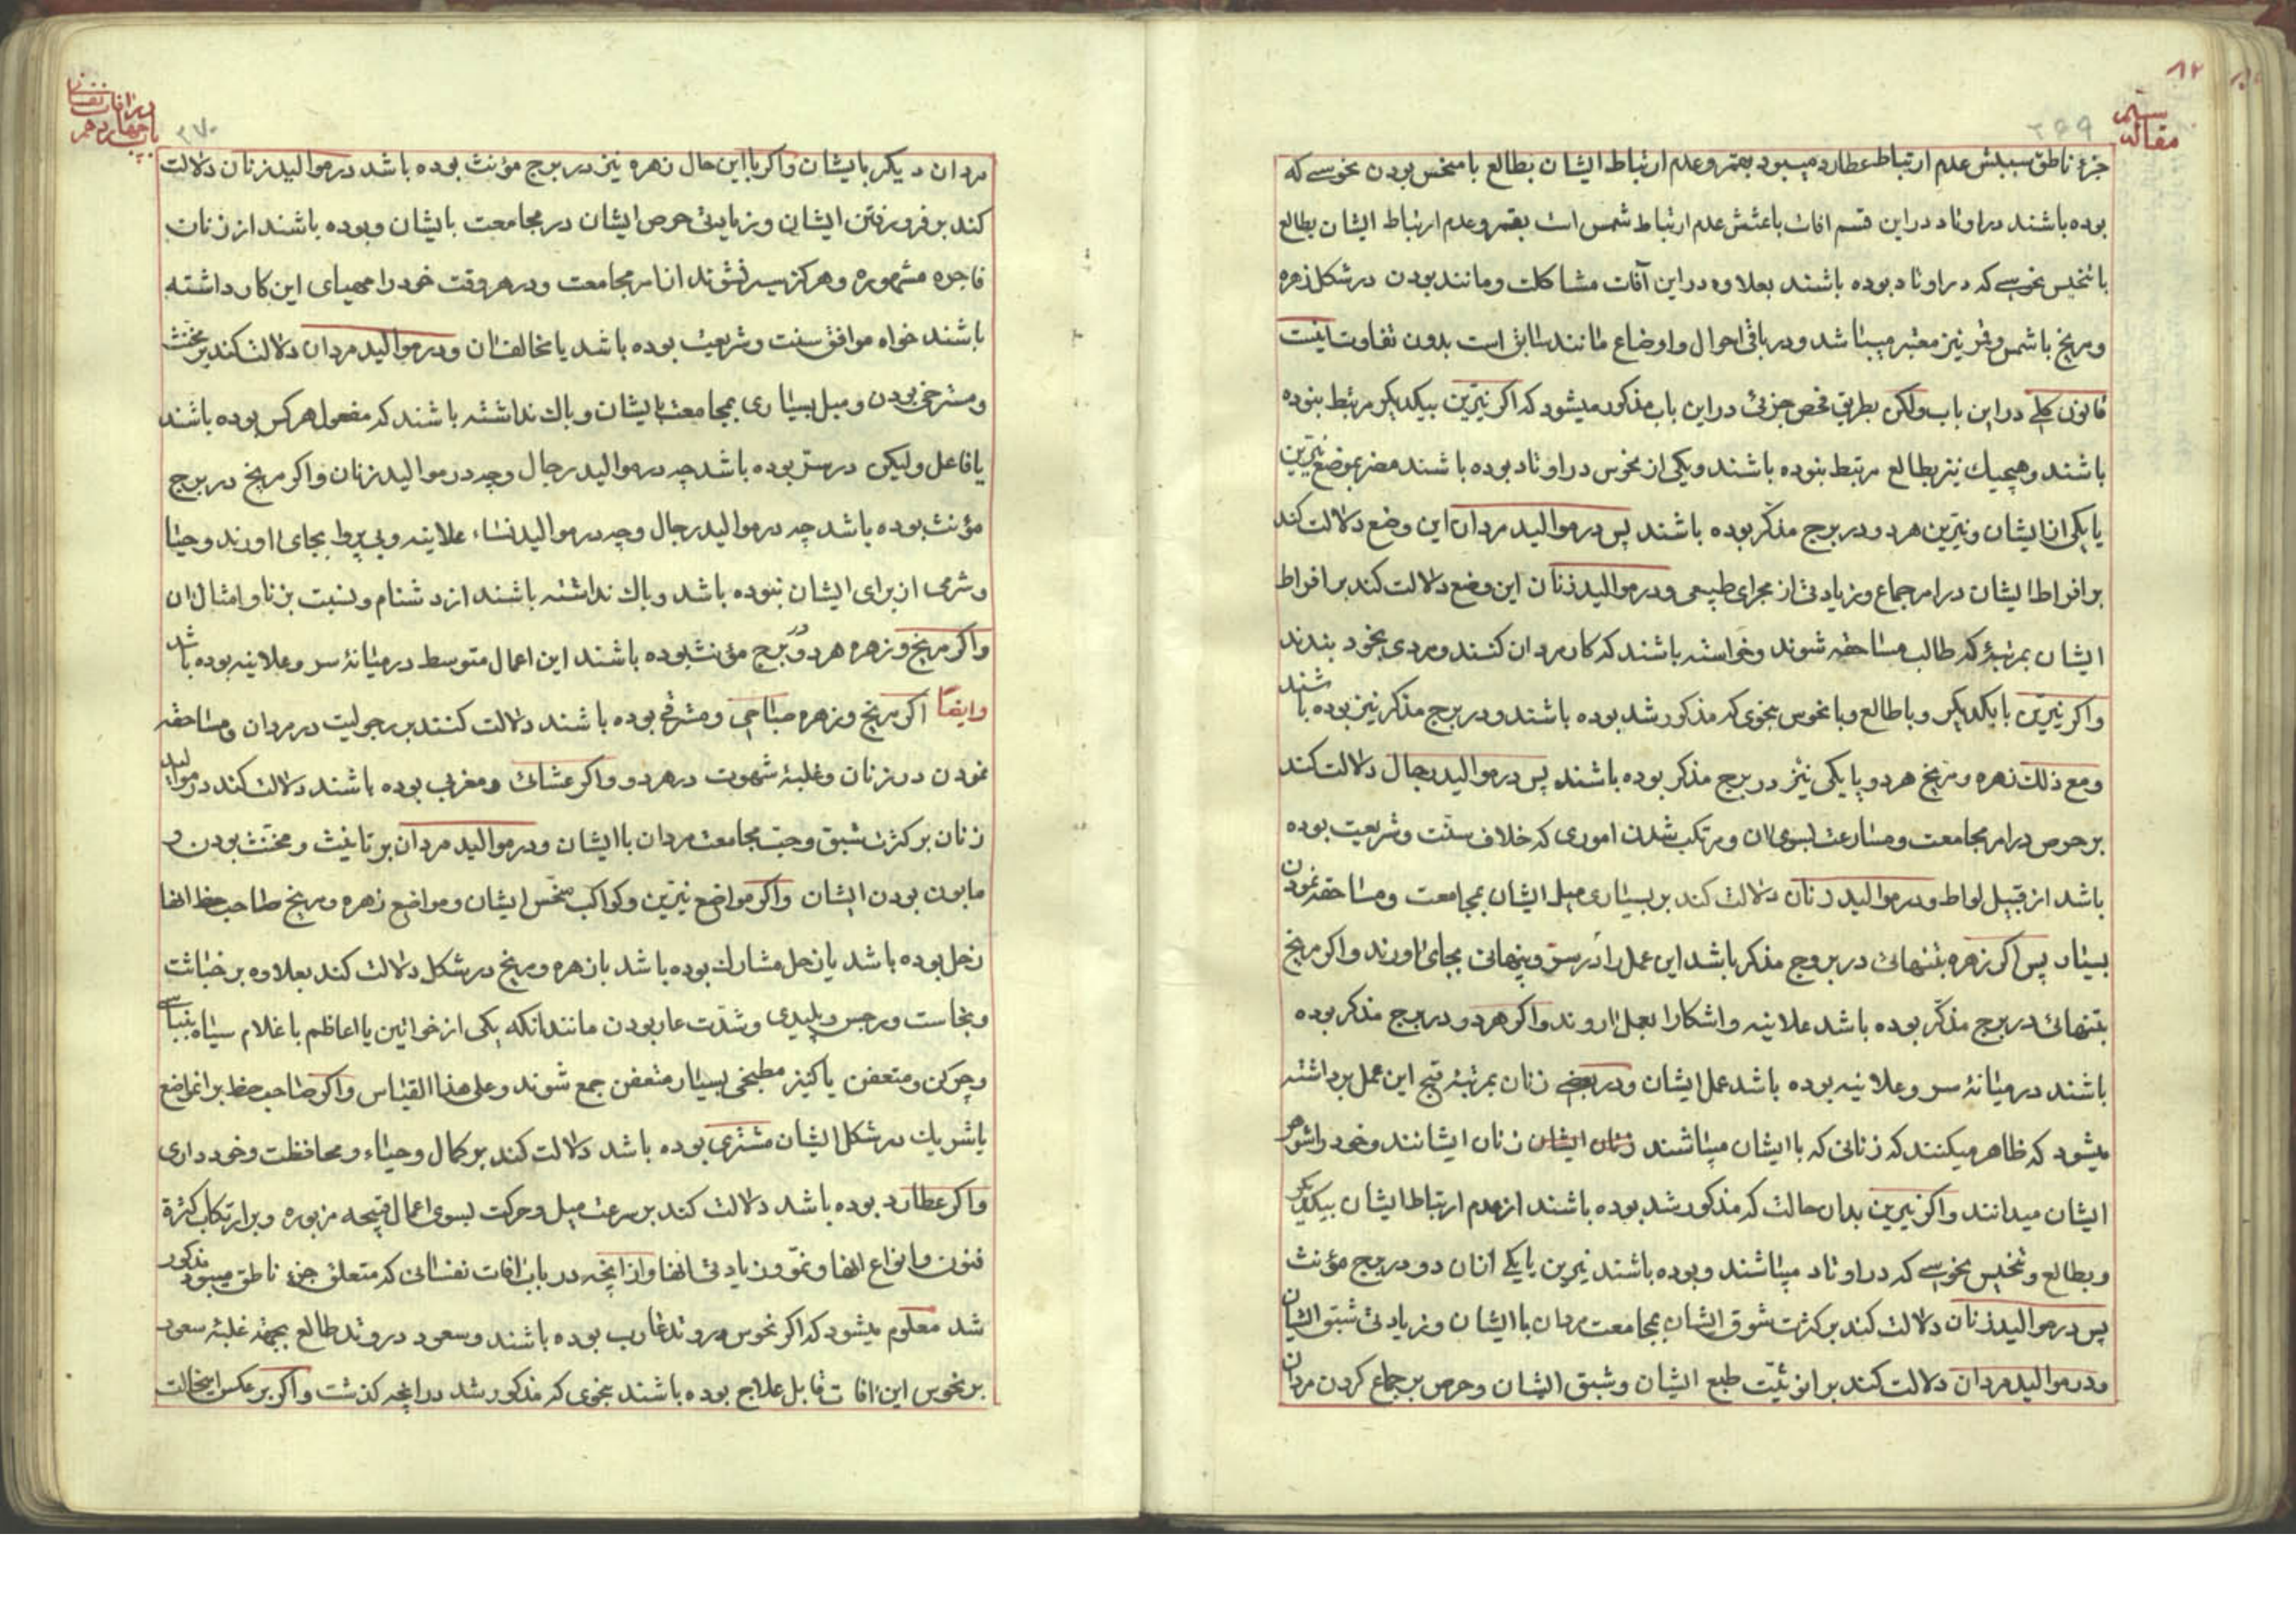 مقاله سیم
۳۶۹
جزء ناطق سببش عدم ارتباط عطارد میبود بقمر و عدم ارتباط ایشان بطالع با منحس بودن نحوسی که
بوده باشند در اوتاد در این قسم افات باعثش عدم ارتباط شمس است بقمر و عدم ارتباط ایشان بطالع
با تنحیس نحوسی که در اوتاد بوده باشند بعلاوه در این آفات مشاکلت و مانند بودن در شکل زهره
و مریخ با شمس و قمر نیز معتبر میباشد و در باقی احوال و اوضاع مانند سابق است بدون تفاوت اینست
قانون کلی در این باب ولکن بطریق فحص جزئی در این باب مذکور میشود که اکر نیّرین بیکدیکر مرتبط نبوده
باشند و هیچیك نیز بطالع مرتبط نبوده باشند و یکی از نحوس در اوتاد بوده باشند مضر بموضع نیّرین
یا یکی از ایشان و نیّرین هر دو در برج مذکّر بوده باشند پس در موالید مردان این وضع دلالت کند
بر افراط ایشان در امر جماع و زیادتی از مجرای طبیعی و در موالید زنان این وضع دلالت کند بر افراط
ایشان بمرتبۀ که طالب مساحقه شوند و خواسته باشند که کار مردان کنند و مردی بخود بندند
و اکر نیّرین با یکدیکر و با طالع و با نحوس بنحوی که مذکور شد بوده باشند و در برج مذکر نیز بوده باشند
و مع ذلك زهره و مریخ هر دو یا یکی نیز در برج مذکر بوده باشند پس در موالید رجال دلالت کند
بر حرص در امر مجامعت و مسارعت بسوی ان و مرتکب شدن اموری که خلاف سنّت و شریعت بوده
باشد از قبیل لواط و در موالید زنان دلالت کند بر بسیاری میل ایشان بمجامعت و مساحقه نمودن
بسیار پس اکر زهره بتنهائی در بروج مذکر باشد این عمل را در سرّ و پنهانی بجای اورند و اکر مریخ
بتنهائی در برج مذکّر بوده باشد علانیه و اشکارا بعمل اروند و اکر هر دو در برج مذکر بوده
باشند در میانۀ سر و علانیه بوده باشد عمل ایشان و در بعضی زنان بمرتبۀ قبح این عمل برداشته
میشود که ظاهر میکنند که زنانی که با ایشان میباشند زنان ایشان زنان ایشانند و خود را شوهر
ایشان میدانند و اکر نیرین بدان حالت که مذکور شد بوده باشند از عدم ارتباط ایشان بیکدیکر
و بطالع و تنحیس نحوسی که در اوتاد میباشند و بوده باشند نیرین یا یکی از ان دو در برج مؤنث
پس در موالید زنان دلالت کند بر کثرت شوق ایشان بمجامعت مردان با ایشان و زیادتی شبق ایشان
و در موالید مردان دلالت کند بر انوثیّت طبع ایشان و شبق ایشان و حرص بر جماع کردن مردان
باب چهاردهم در افات نفسانی
۳۷۰
مردان دیکر با یشان و اکر با این حال زهره نیز در برج مؤنث بوده باشد در موالید زنان دلالت
کند بر فرو رفتن ایشان و زیادتی حرص ایشان در مجامعت با یشان و بوده باشند از زنان
فاجره مشهوره و هرکز سیر نشوند از امر مجامعت و در هر وقت خود را مهیای این کار داشته
باشند خواه موافق سنت و شریعت بوده باشد یا مخالف ان و در موالید مردان دلالت کند بر مخنّث
و مسترخی بودن و میل بسیاری بمجامعت با یشان و باك نداشته باشند که مفعول هرکس بوده باشند
یا فاعل ولیکن در ستر بوده باشد چه در موالید رجال و چه در موالید زنان و اکر مریخ در برج
مؤنث بوده باشد چه در موالید رجال و چه در موالید نساء علانیه و بی پروا بجای اورند و حیا
و شرمی از برای ایشان نبوده باشد و باك نداشته باشند از دشنام و نسبت بزنا و امثال ان
و اکر مریخ و زهره هر دو در برج مؤنث بوده باشند این اعمال متوسط در میانۀ سر و علانیه بوده باشد
و ایضاً اکر مریخ و زهره صباحی و مشرقی بوده باشند دلالت کنند بر رجولیت در مردان و مساحقه
نمودن در زنان و غلبۀ شهوت در هر دو و اکر عشائی و مغربی بوده باشند دلالت کند در موالید
زنان بر کثرت شبق و حبّ مجامعت مردان با ایشان و در موالید مردان بر تانیث و مخنّث بودن و
مابون بودن ایشان و اکر مواضع نیّرین و کواکب منحّس ایشان و مواضع زهره و مریخ صاحب حظ انها
زحل بوده باشد یا زحل مشارك بوده باشد با زهره و مریخ در شکل دلالت کند بعلاوه بر خباثت
و نجاست و رجس و پلیدی و شدّت عار بودن مانند انکه یکی از خواتین یا اعاظم با غلام سیاه بنباسی
و چرکن و متعفن یا کنیز مطبخی بسیار متعفن جمع شوند و علی هذا القیاس و اکر صاحب حظ بر انمواضع
یا شریك در شکل ایشان مشتری بوده باشد دلالت کند بر کمال و حیاء و محافظت و خود داری
و اکر عطارد بوده باشد دلالت کند بر سرعت میل و حرکت بسوی اعمال قبیحه مزبوره و بر ارتکاب کثرة
فنون و انواع انها و نموّ و زیادتی انها و از انچه در باب افات نفسانی که متعلق جزء ناطق میبود مذکور
شد معلوم میشود که اکر نحوس در وتد غارب بوده باشند و سعود در وتد طالع بجهة غلبۀ سعود
بر نحوس این افات قابل علاج بوده باشند بنحوی که مذکور شد در انچه کذشت و اکر بر عکس اینحالت